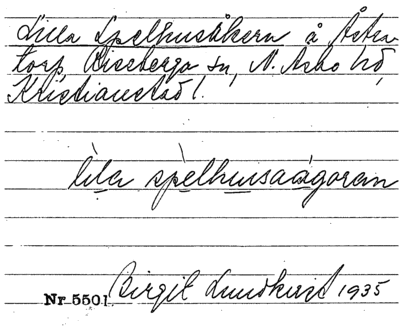 Lilla Spelhusåkern å Åstra
torp, Risseberga sn, N. Asbo hd,
Kristianstad l.
lila spelhusaågoran
Birgit Lundkvist 1935
Nr 5501.